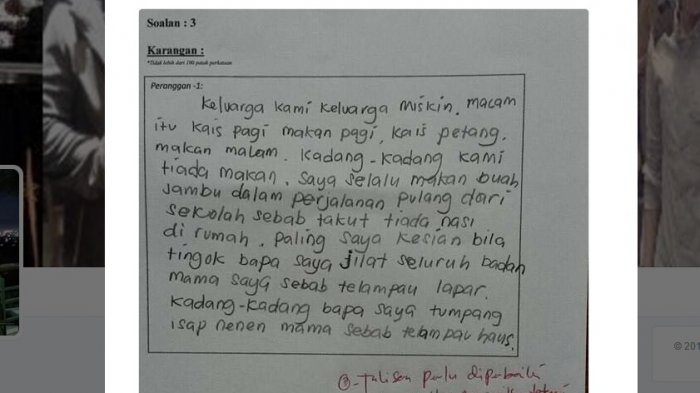 Soalan : 3
Karangan :
*Tidak lebih dari 100 patah perkataan
Peranggan -1:
Keluarga kami keluarga miskin. macam
itu kais pagi makan pagi, kais petang.
makan malam. Kadang-kadang kami
tiada makan. saya selalu makan buah
jambu dalam perjalanan pulang dari
sekolah sebab takut tiada nasi
di rumah. paling saya kesian bila
tingok bapa saya jilat seluruh badan
mama saya sebab telampau lapar.
kadang-kadang bapa saya tumpang
isap nenen mama sebab telampau haus.
- Tulisan perlu diperbaiki
© 201